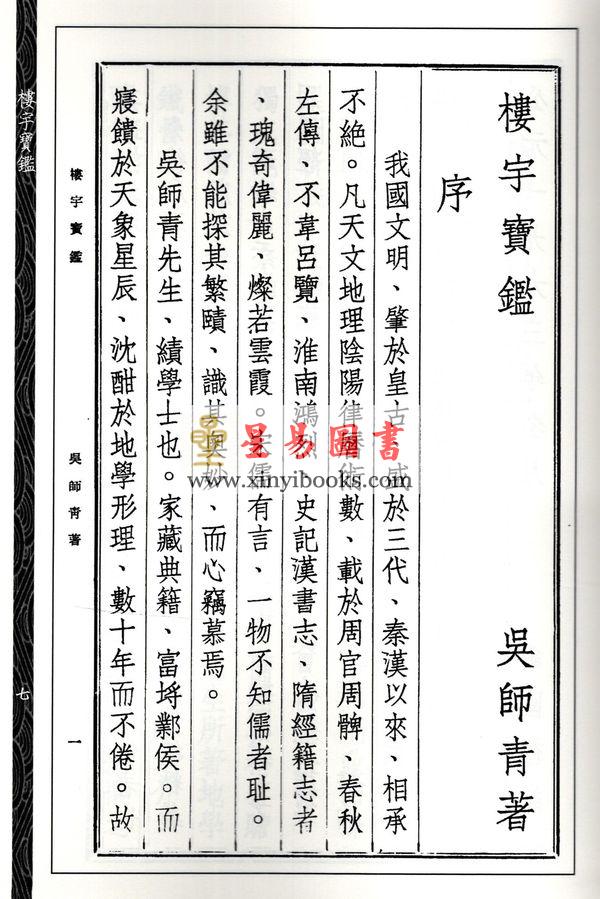 樓宇寶鑑 吳師青著
序
我國文明、肇於皇古、盛於三代、秦漢以來、相承
不絕。凡天文地理陰陽律曆術數、載於周官周髀、春秋
左傳、不韋呂覽、淮南鴻烈、史記漢書志、隋經籍志者
、瑰奇偉麗、燦若雲霞。宋儒有言、一物不知儒者耻。
余雖不能探其繁賾、識其奧妙、而心竊慕焉。
吳師青先生、績學士也。家藏典籍、富埒鄴侯。而
寢饋於天象星辰、沈酣於地學形理、數十年而不倦。故
樓宇寶鑑 吳師青著 一
樓宇寶鑑 七
星易圖書
www.xinyibooks.com